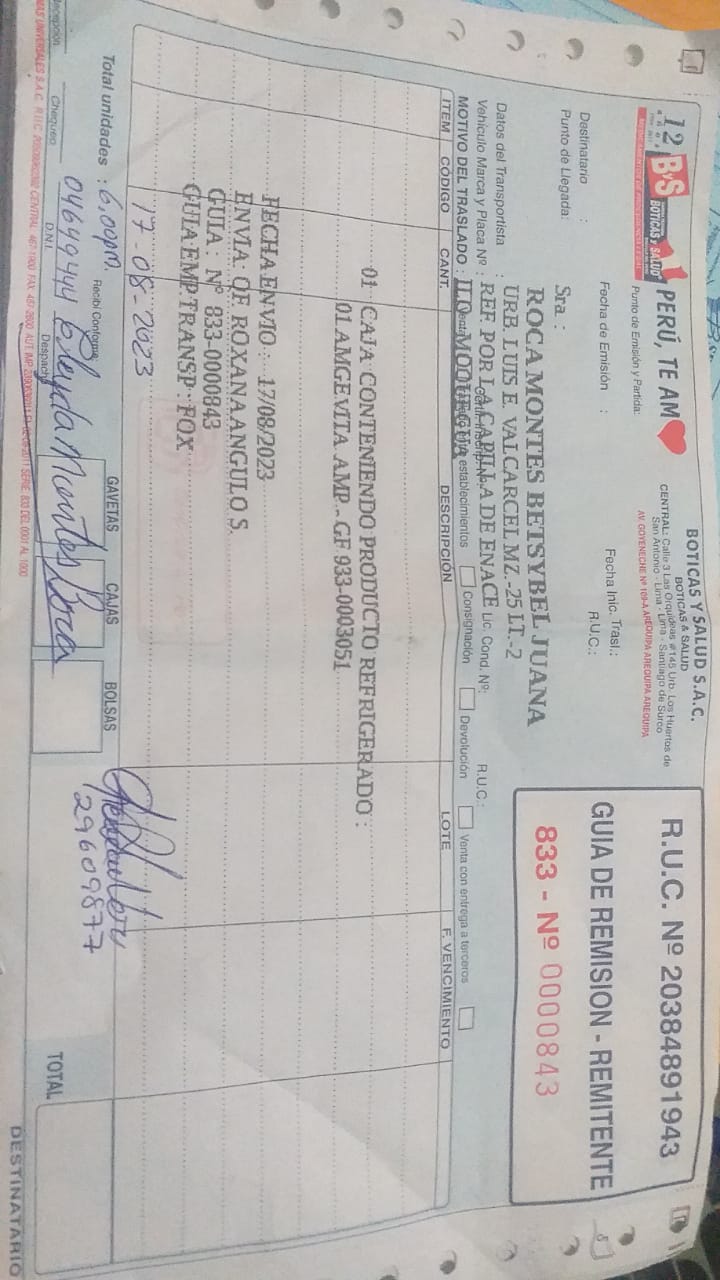 12
años
ByS BOTICAS y SALUD PERÚ, TE AM
BOTICAS Y SALUD S.A.C.
BOTICAS & SALUD
CENTRAL: Calle 3 Las Orquídeas #145 Urb. Los Huertos de
San Antonio - Lima - Lima - Santiago de Surco
Punto de Emisión y Partida:
AV. GOYENECHE Nº 109-A AREQUIPA AREQUIPA AREQUIPA
R.U.C. Nº 20384891943
GUIA DE REMISION - REMITENTE
833 - Nº 0000843
Fecha de Emisión :
Fecha Inic. Trasl.:
Destinatario :
R.U.C.:
Punto de Llegada:
Sra :
ROCA MONTES BETSYBEL JUANA
URB. LUIS E. VALCARCEL MZ.-25 LT.-2
Datos del Transportista :
R.U.C.:
Vehículo Marca y Placa Nº :
REF. POR LA CAPILLA DE ENACE
Lic. Cond. Nº:
MOTIVO DEL TRASLADO :
ILO MOQUEGUA
establecimientos
Consignación
Devolución
Venta con entrega a terceros
ITEM CÓDIGO CANT. DESCRIPCIÓN LOTE F. VENCIMIENTO
01 CAJA CONTENIENDO PRODUCTO REFRIGERADO :
01 AMGEVITA AMP - GF 933-0003051
FECHA ENVIO : 17/08/2023
ENVIA : QF. ROXANA ANGULO S.
GUIA : Nº 833-0000843
GUIA EMP TRANSP : FOX
17-08-2023
Total unidades : 6,00pm.
Recibí Conforme
GAVETAS CAJAS BOLSAS
29609877
04649444
Montes Roca
Recepción Chequeo D.N.I. Despacho
TOTAL
DESTINATARIO